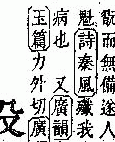 翫而無備遂人
魁詩秦風殲我
病也 又廣韻
玉篇力外切廣